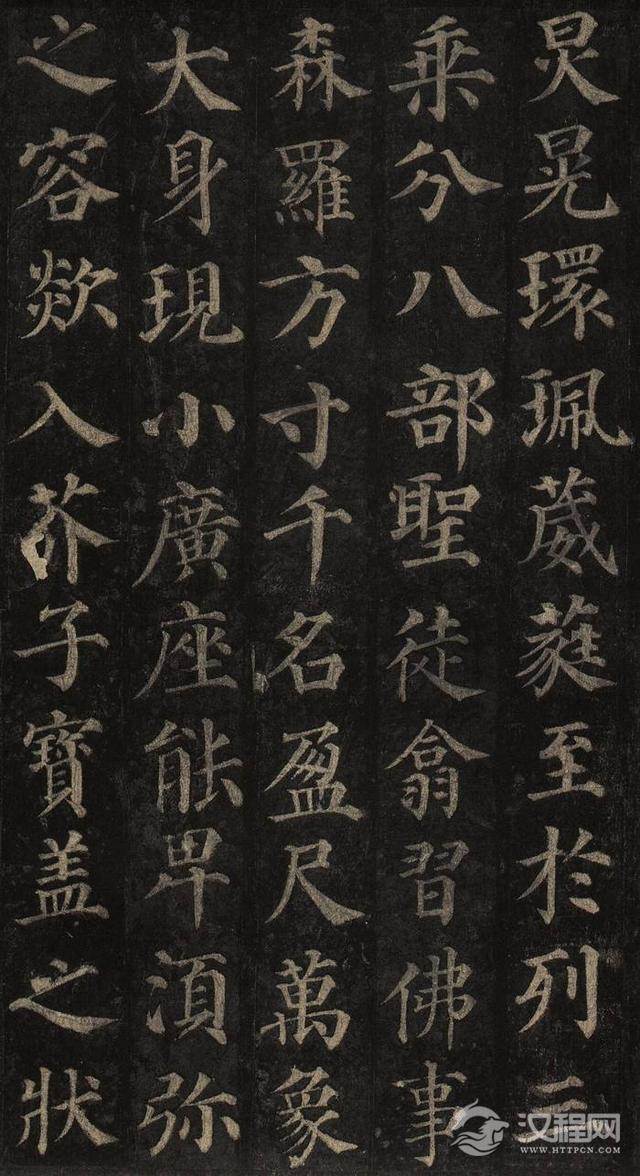 炅晃環珮葳蕤至於列三
乘分八部聖徒翕習佛事
森羅方寸千名盈尺萬象
大身現小廣座能卑須弥
之容欻入芥子寶盖之狀
汉程网
WWW.HTTPCN.COM